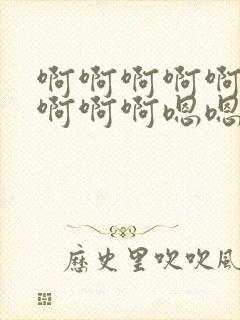 啊啊啊啊啊
啊啊啊嗯嗯
歷史里吹吹風